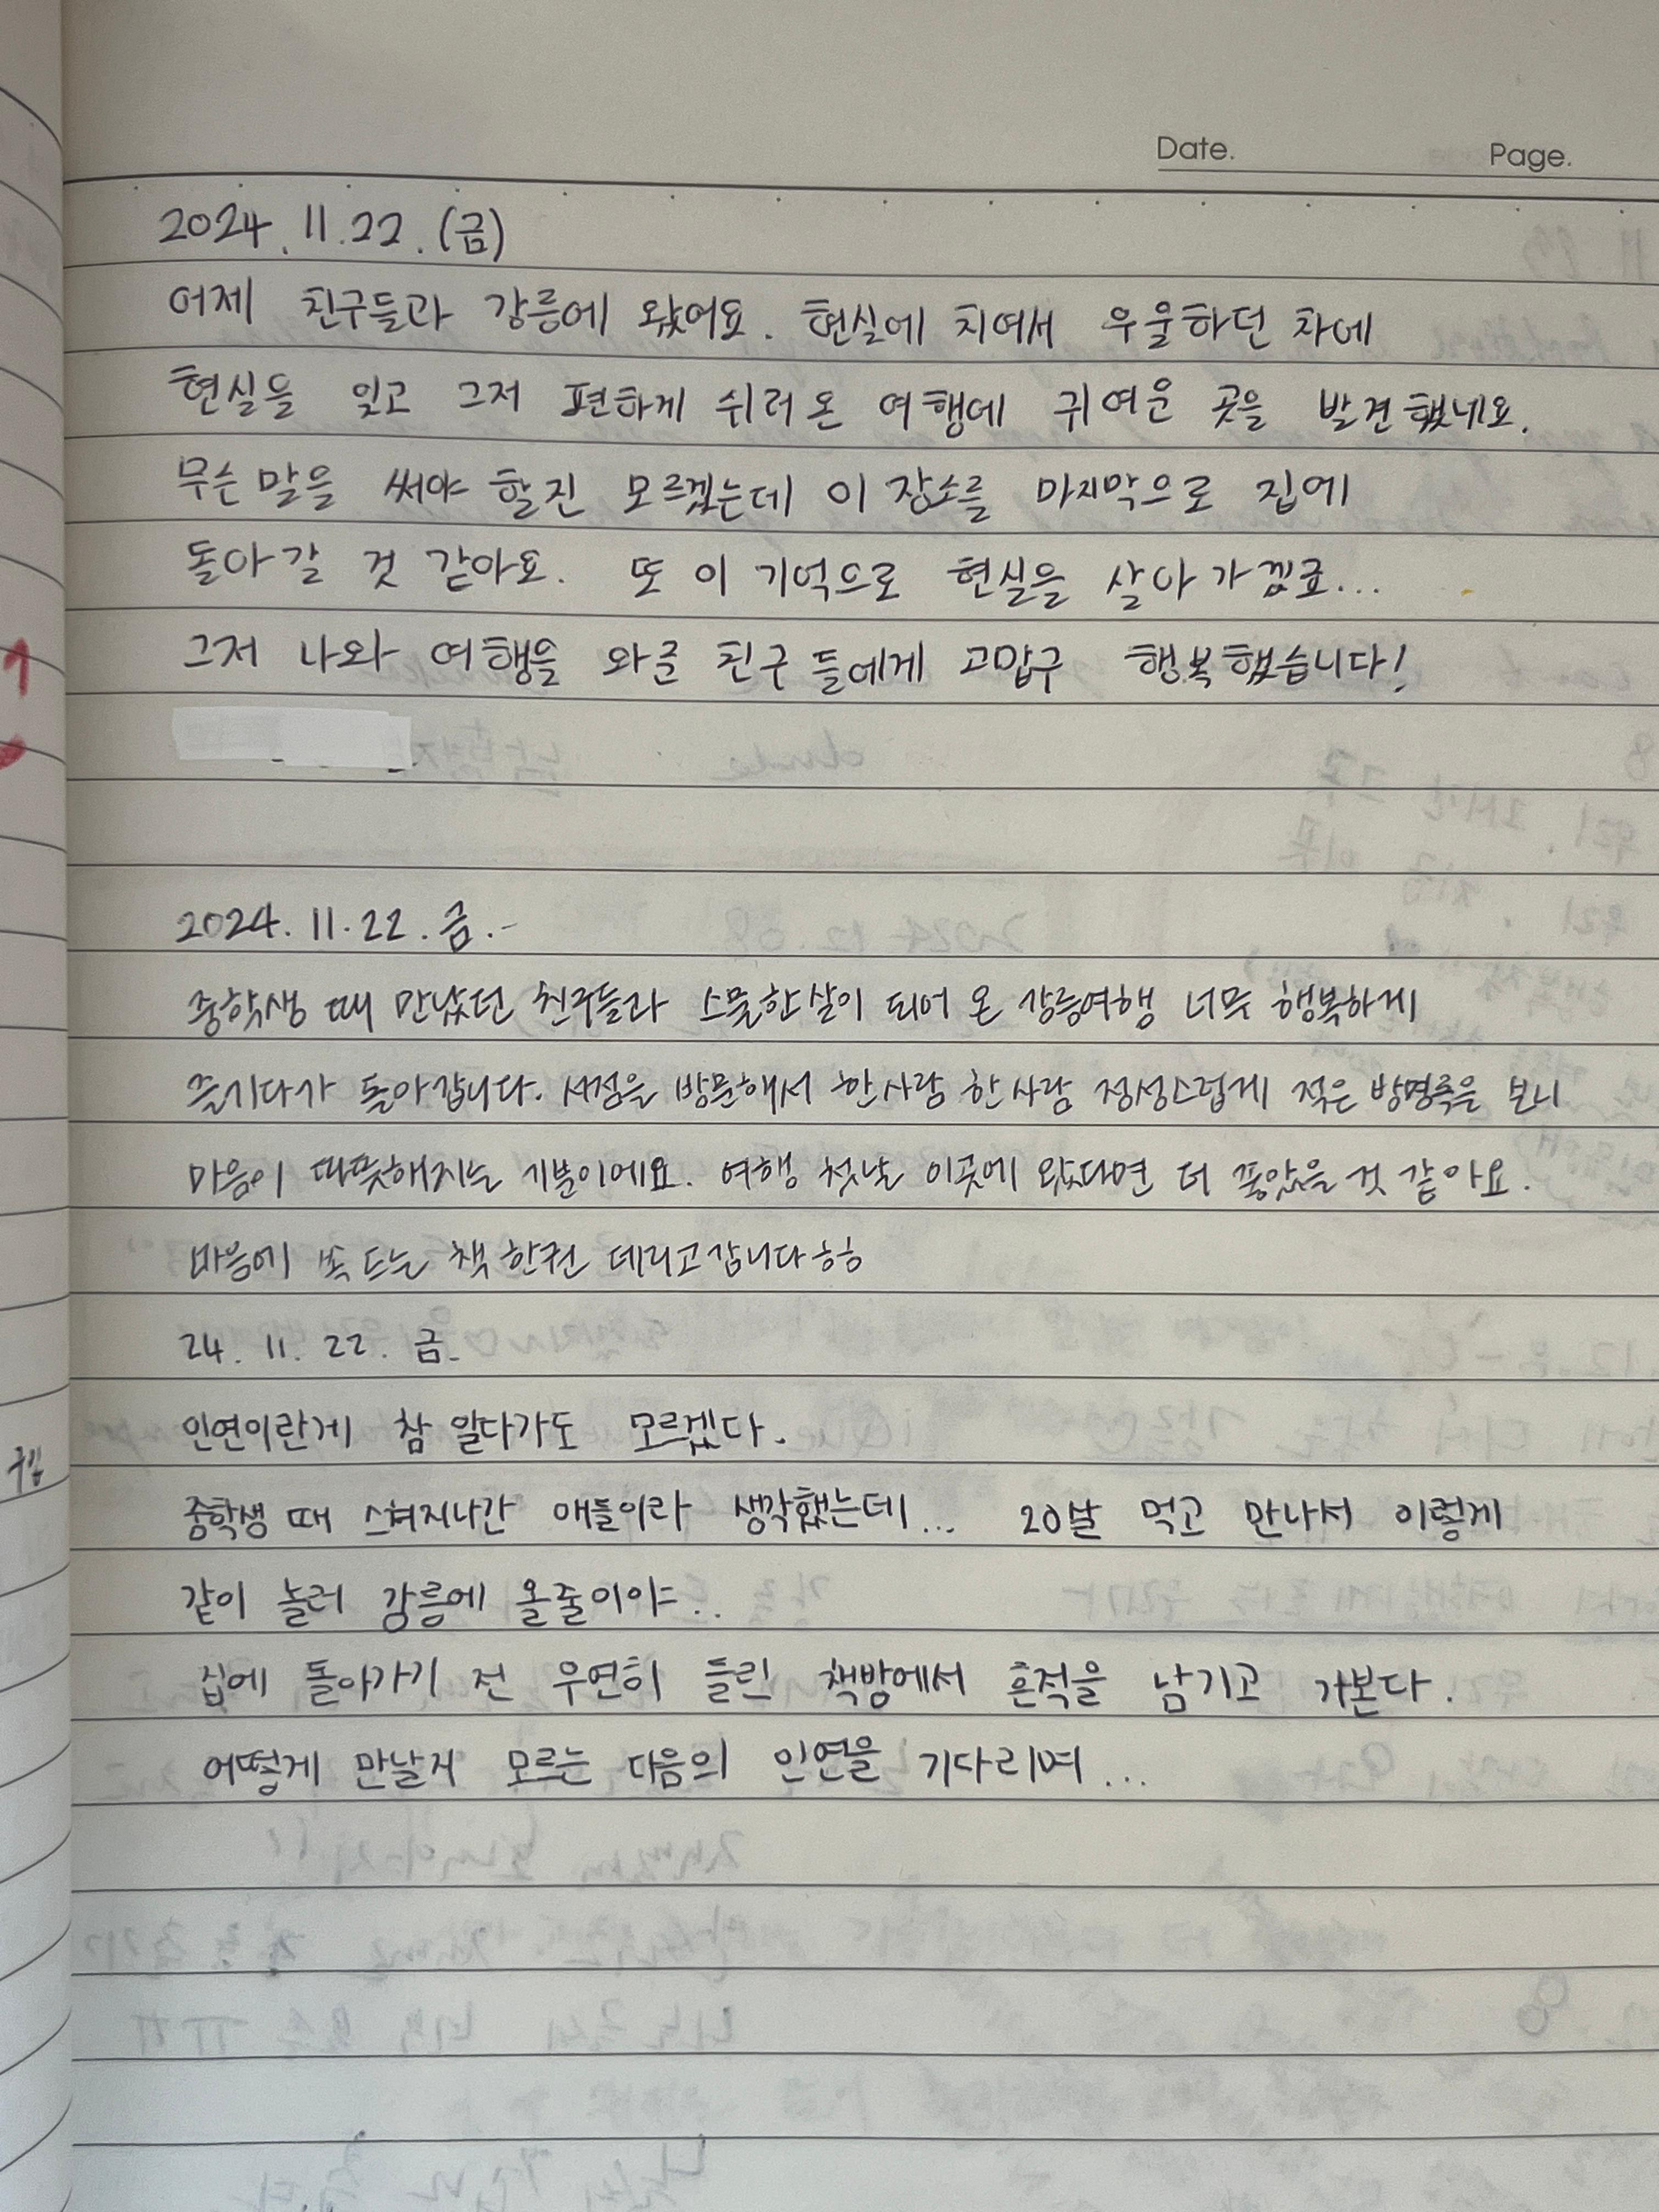 Date. Page.
2024. 11. 22. (금)
어제 친구들과 강릉에 왔어요. 현실에 치여서 우울하던 차에
현실을 잊고 그저 편하게 쉬러 온 여행에 귀여운 곳을 발견했네요.
무슨 말을 써야 할진 모르겠는데 이 장소를 마지막으로 집에
돌아갈 것 같아요. 또 이 기억으로 현실을 살아가겠죠...
그저 나와 여행을 와준 친구들에게 고맙구 행복했습니다!
2024. 11. 22. 금.-
중학생 때 만났던 친구들과 스물한살이 되어 온 강릉여행 너무 행복하게
즐기다가 돌아갑니다. 서점을 방문해서 한사람 한사람 정성스럽게 적은 방명록을 보니
마음이 따뜻해지는 기분이에요. 여행 첫날 이곳에 왔다면 더 좋았을 것 같아요.
마음에 쏙 드는 책 한권 데리고갑니다ㅎㅎ
24. 11. 22. 금.
인연이란게 참 알다가도 모르겠다.
중학생 때 스쳐지나간 애들이라 생각했는데... 20살 먹고 만나서 이렇게
같이 놀러 강릉에 올줄이야..
집에 돌아가기 전 우연히 들린 책방에서 흔적을 남기고 가본다.
어떻게 만날지 모르는 다음의 인연을 기다리며...